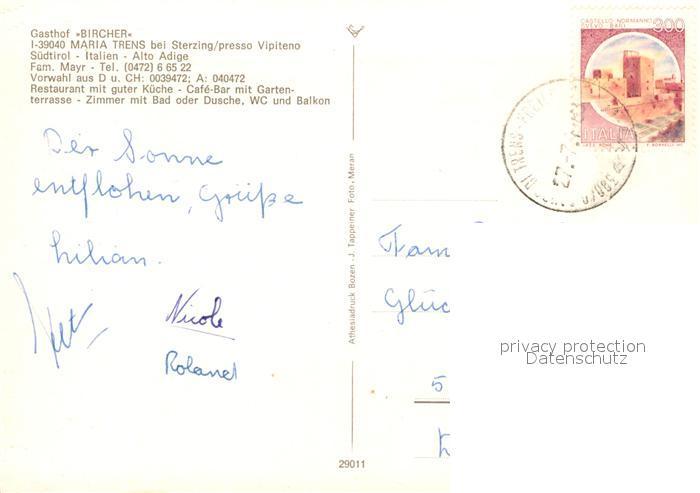 Gasthof »BIRCHER«
I-39040 MARIA TRENS bei Sterzing/presso Vipiteno
Südtirol - Italien - Alto Adige
Fam. Mayr - Tel. (0472) 6 65 22
Vorwahl aus D u. CH: 0039472; A: 040472
Restaurant mit guter Küche - Café-Bar mit Garten-
terrasse - Zimmer mit Bad oder Dusche, WC und Balkon
Der Sonne
entflohen, Grüße
Lilian.
Nicole
Roland
Athesiadruck Bozen - J. Tappeiner Foto, Meran
29011
CASTELLO NORMANNO
SVEVO BARI
300
ITALIA
DI TRENS
Fam
Glüc
5
privacy protection
Datenschutz